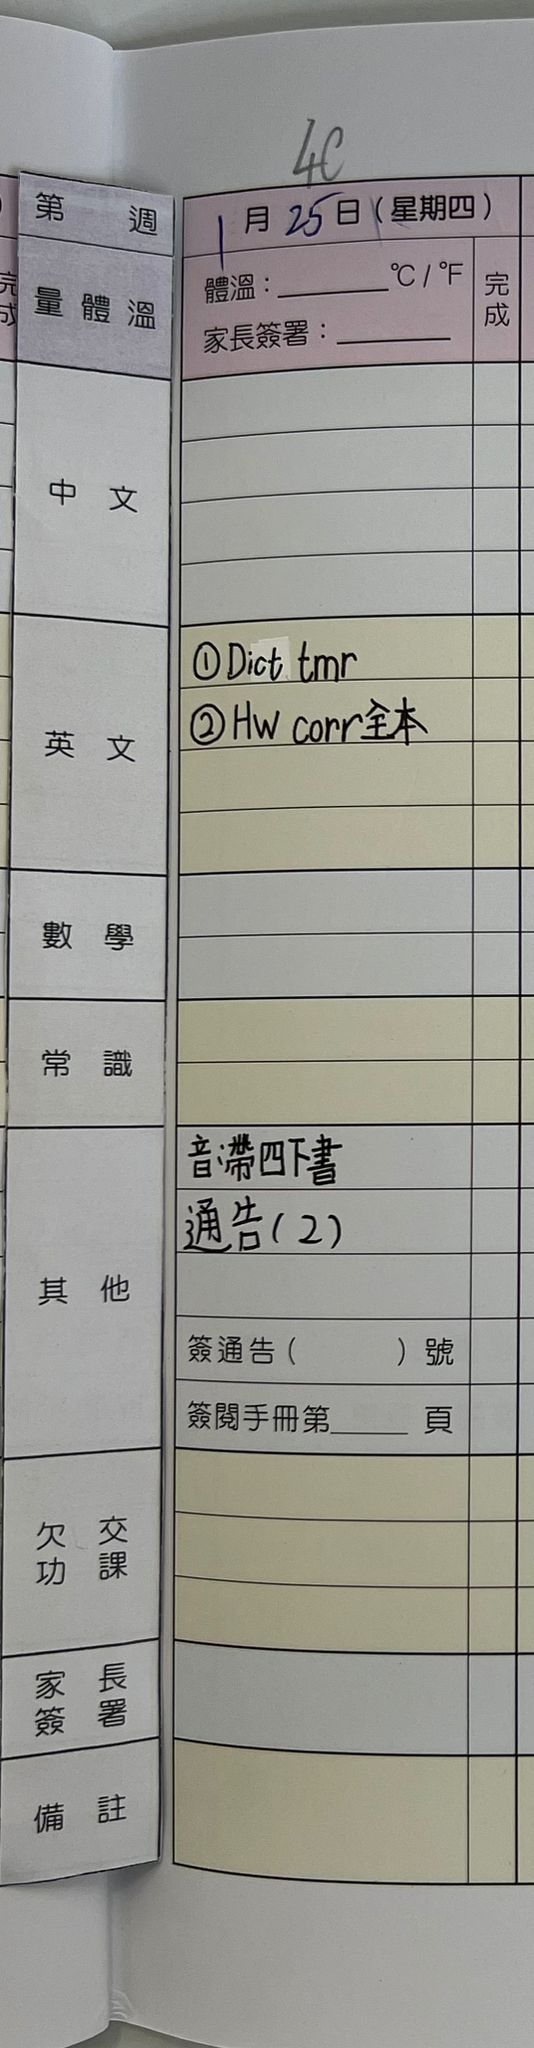 4C
第 週
1月25日(星期四)
完成
量體溫
體溫：______°C/°F
完成
家長簽署：______
中文
英文
①Dict tmr
②HW corr全本
數學
常識
其他
音:帶四下書
通告(2)
簽通告(    )號
簽閱手冊第____頁
欠交功課
家長簽署
備註